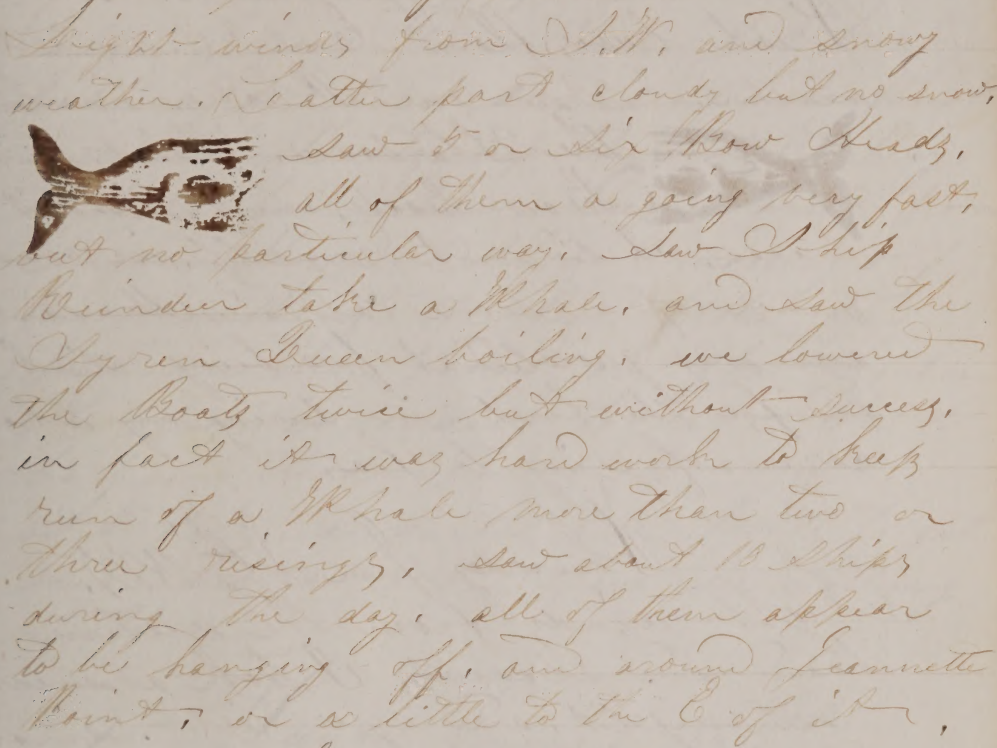 Light winds from S.W. and snowy
weather. Latter part cloudy but no snow,
saw 5 or six Bow Heads,
all of them a going very fast,
but no particular way. saw Ship
Reindeer take a Whale. and saw the
Syren Queen boiling. we lowered
the Boats twice but without success,
in fact it was hard work to keep
run of a Whale more than two or
three risings, saw about 10 ships
during the day. all of them appear
to be hanging off, and around Jeannette
Point, or a little to the E of it,